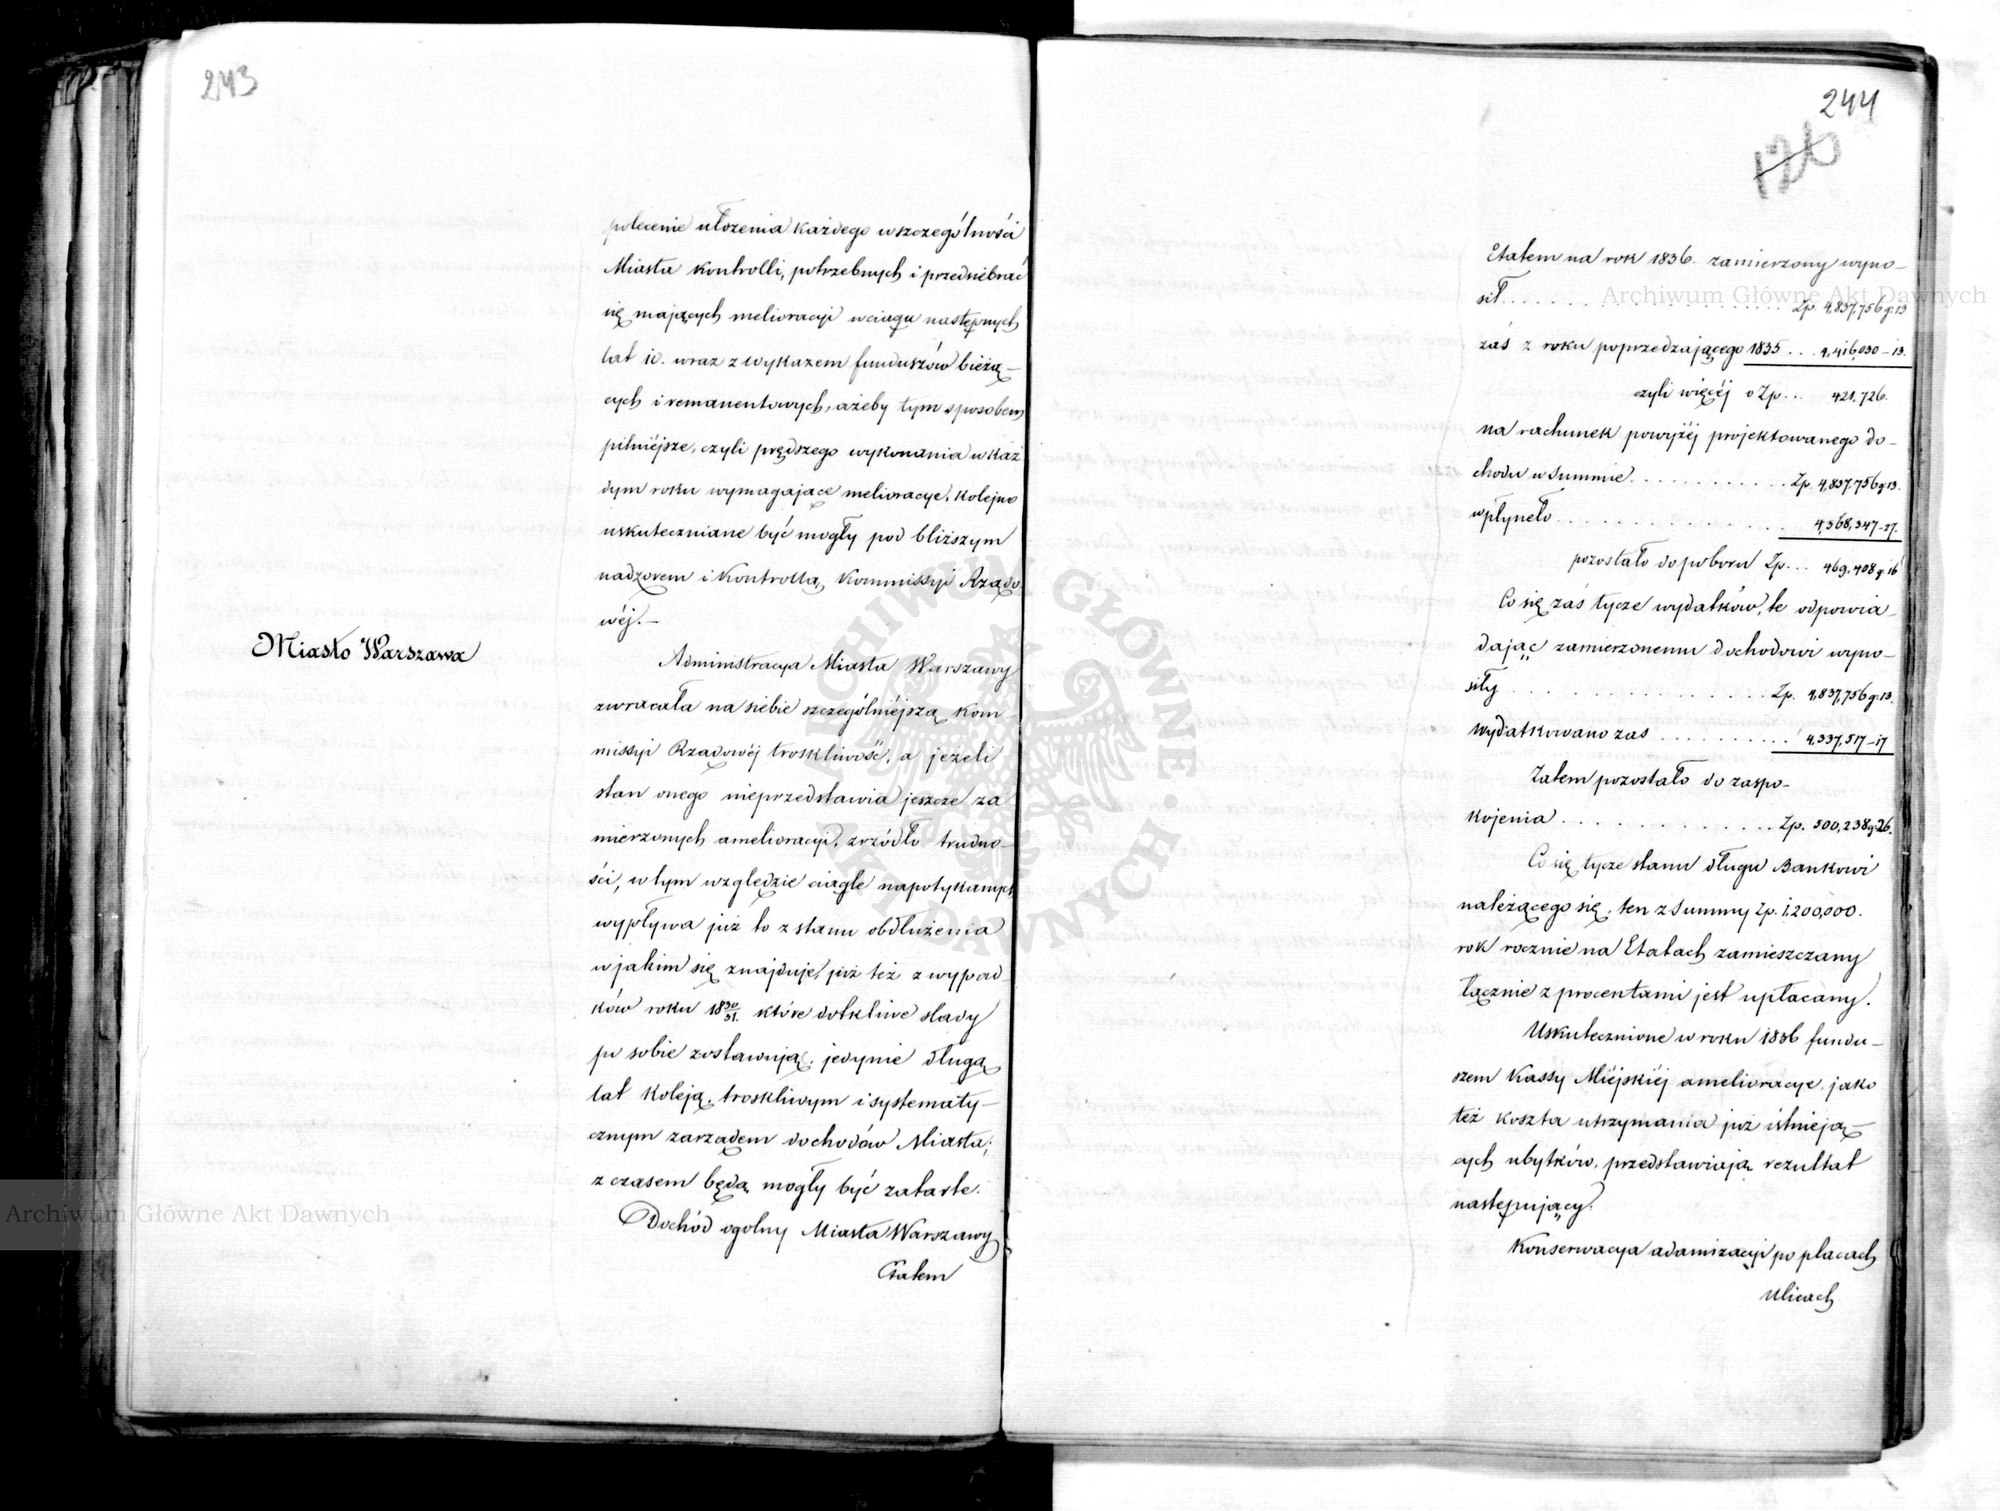 243
polecenie ułożenia każdego wszczególności
Miasta kontrolli, potrzebnych i przedsiebrać
się mających melioracyi wciągu następnych
lat 10. wraz z wykazem funduszów bieżą-
cych i remanentowych, ażeby tym sposobem
pilniejsze, czyli prędszego wykonania w każ
dym roku wymagające melioracye, kolejno
uskuteczniane być mogły pod bliższym
nadzorem i kontrollą Kommissyi Rządo
wéj.-
Miasto Warszawa
Administracya Miasta Warszawy
zwracała na siebie szczególniejszą Kom-
missyi Rządowéj troskliwość, a jeżeli
stan onego nieprzedstawia jeszcze za
mierzonych amelioracyi, zrzódło trudno-
ści, w tym względzie ciągle napotykanych
wypływa już to z stanu obdłużenia
w jakim się znajduje, już też z wypad-
ków roku 1830/31. które dotkliwe slady
po sobie zostawują, jedynie długą
lat koleją, troskliwym i systematy-
cznym zarządem dochodów Miasta,
z czasem będą mogły być zatarte.
Dochód ogolny Miasta Warszawy
Etatem
244
126
Etatem na rok 1836. zamierzony wyno-
sił . . . . . . Zp. 4,837,756 g. 13
zaś z roku poprzedzającego 1835 . . . 4,416,030 - 13.
czyli więcéj o Zp. . . 421,726.
na rachunek powyżéj projektowanego do-
chodu w Summie . . . . . . Zp. 4,837,756 g 13.
wpłyneło . . . . . . 4,368,347 - 27.
pozostało do poboru Zp. . . 469,408 g 16
Co się zaś tycze wydatków, te odpowia-
dając zamierzonemu dochodowi wyno-
siły . . . . . . Zp. 4,837,756 g. 13.
wydatkowano zas . . . . . . 4,337,517 - 17
Zatem pozostało do zaspo-
kojenia . . . . . . Zp. 500,238 g. 26.
Co się tycze stanu długu Bankowi
należącego się, ten z Summy Zp. 1,200,000.
rok rocznie na Etatach zamieszczany
łącznie z procentami jest upłacany.
Uskutecznione w roku 1836 fundu-
szem Kassy Miéjskiéj amelioracye, jako
też koszta utrzymania już istnieją-
cych ubytków, przedstawiają rezultat
następujący.
Konserwacya adamizacyi po placach
Ulicach
Archiwum Główne Akt Dawnych
Archiwum Główne Akt Dawnych
ARCHIWUM GŁÓWNE AKT DAWNYCH